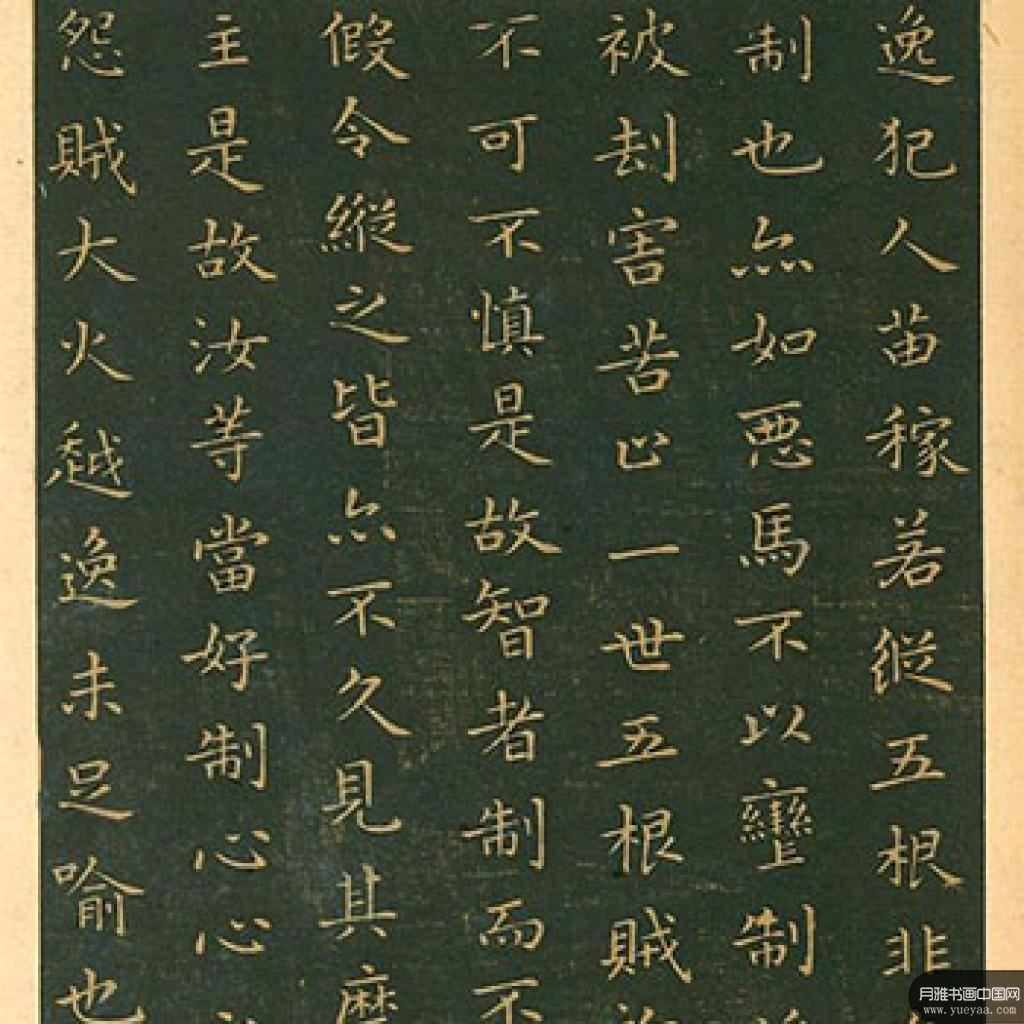 逸犯人苗稼若縱五根非
制也亦如悪馬不以轡制
被刦害苦止一世五根賊
不可不慎是故智者制而不
假令縱之皆亦不久見其磨
主是故汝等當好制心心
怨賊大火越逸未足喻也
月雅书画中国网
www.yueyaa.com